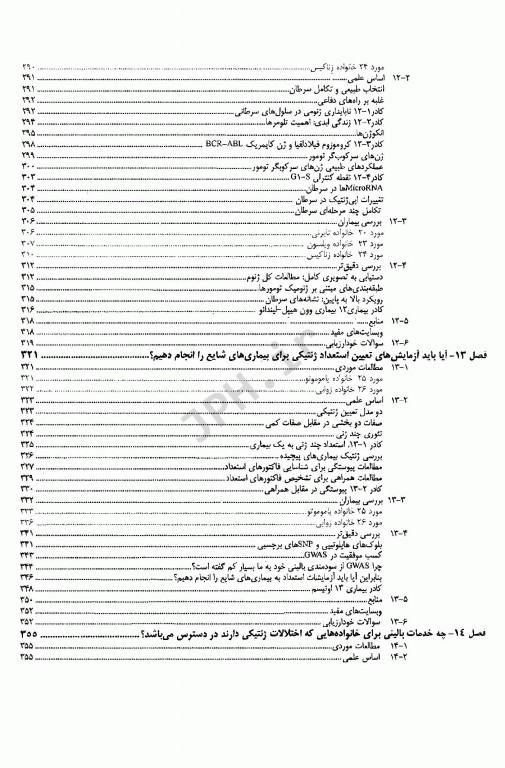 مورد ۲۴ خانواده زناکیس ۲۹۰
۱۲-۲ اساس علمی ۲۹۱
انتخاب طبیعی و تکامل سرطان ۲۹۱
غلبه بر راه‌های دفاعی ۲۹۲
کادر۱-۱۲ ناپایداری ژنومی در سلول‌های سرطانی ۲۹۲
کادر۲-۱۲ زندگی ابدی: اهمیت تلومرها ۲۹۴
انکوژن‌ها ۲۹۵
کادر۳-۱۲ کروموزوم فیلادلفیا و ژن کایمریک BCR-ABL ۲۹۸
ژن‌های سرکوب‌گر تومور ۲۹۹
عملکردهای طبیعی ژن‌های سرکوبگر تومور ۳۰۰
کادر۴-۱۲ نقطه کنترلی G1-S ۳۰۳
MicroRNAها در سرطان ۳۰۴
تغییرات اپی‌ژنتیک در سرطان ۳۰۴
تکامل چند مرحله‌ای سرطان ۳۰۵
۱۲-۳ بررسی بیماران ۳۰۶
مورد ۲۰ خانواده تایرنی ۳۰۶
مورد ۲۳ خانواده ویلسون ۳۰۷
مورد ۲۴ خانواده زناکیس ۳۱۰
۱۲-۴ بررسی دقیق‌تر ۳۱۲
دستیابی به تصویری کامل: مطالعات کل ژنوم ۳۱۲
طبقه‌بندی‌های مبتنی بر ژنومیک تومورها ۳۱۵
رویکرد بالا به پایین: نشانه‌های سرطان ۳۱۵
کادر بیماری۱۲ بیماری وون هیپل-لیندائو ۳۱۶
۱۲-۵ منابع ۳۱۸
وبسایت‌های مفید ۳۱۸
۱۲-۶ سوالات خودارزیابی ۳۱۹
فصل ۱۳- آیا باید آزمایش‌های تعیین استعداد ژنتیکی برای بیماری‌های شایع را انجام دهیم؟ ۳۲۱
۱۳-۱ مطالعات موردی ۳۲۱
مورد ۲۵ خانواده یاموموتو ۳۲۱
مورد ۲۶ خانواده زوابی ۳۲۲
۱۳-۲ اساس علمی ۳۲۳
دو مدل تعیین ژنتیکی ۳۲۳
صفات دو بخشی در مقابل صفات کمی ۳۲۴
تئوری چند ژنی ۳۲۴
کادر ۱-۱۳. استعداد چند ژنی به یک بیماری ۳۲۵
بررسی ژنتیک بیماری‌های پیچیده ۳۲۶
مطالعات پیوستگی برای شناسایی فاکتورهای استعداد ۳۲۷
مطالعات همراهی برای تشخیص فاکتورهای استعداد ۳۲۹
کادر ۲-۱۳ پیوستگی در مقابل همراهی ۳۳۰
۱۳-۳ بررسی بیماران ۳۳۲
مورد ۲۵ خانواده یاموموتو ۳۳۳
مورد ۲۶ خانواده زوابی ۳۳۶
۱۳-۴ بررسی دقیق‌تر ۳۴۱
بلوک‌های هاپلوتیپی و SNPهای برچسبی ۳۴۱
کسب موفقیت در GWAS ۳۴۳
چرا GWAS از سودمندی بالینی خود به ما بسیار کم گفته است؟ ۳۴۴
بنابراین آیا باید آزمایشات استعداد به بیماری‌های شایع را انجام دهیم؟ ۳۴۶
کادر بیماری ۱۳ اوتیسم ۳۴۸
۱۳-۵ منابع ۳۵۰
وبسایت‌های مفید ۳۵۲
۱۳-۶ سوالات خودارزیابی ۳۵۲
فصل ۱٤- چه خدمات بالینی برای خانواده‌هایی که اختلالات ژنتیکی دارند در دسترس می‌باشد؟ ۳۵۵
۱۴-۱ مطالعات موردی ۳۵۵
۱۴-۲ اساس علمی ۳۵۵
JPH.ir